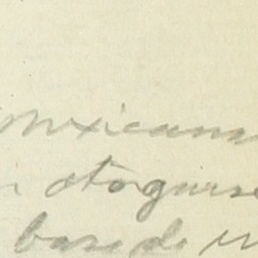 Mexicana
otorguese
base de